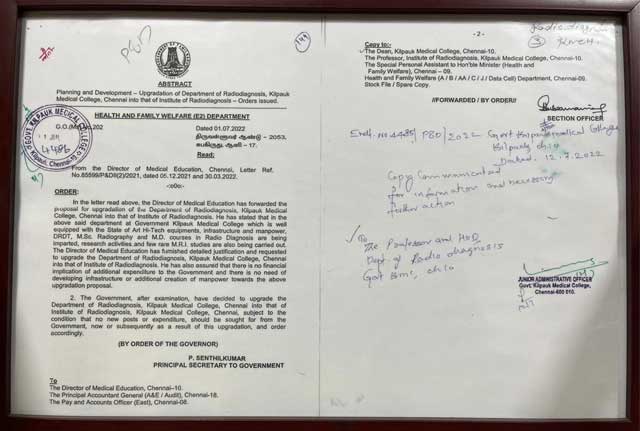 ABSTRACT
Planning and Development – Upgradation of Department of Radiodiagnosis, Kilpauk
Medical College, Chennai into that of Institute of Radiodiagnosis - Orders issued.
HEALTH AND FAMILY WELFARE (E2) DEPARTMENT
G.O.(Ms)No.202
Dated 01.07.2022
திருவள்ளுவர் ஆண்டு - 2053,
சுபகிருது, ஆனி - 17.
Read:
From the Director of Medical Education, Chennai, Letter Ref.
No.85599/P&DII(2)/2021, dated 05.12.2021 and 30.03.2022.
-:o0o:-
ORDER:
In the letter read above, the Director of Medical Education has forwarded the
proposal for upgradation of the Department of Radiodiagnosis, Kilpauk Medical
College, Chennai into that of Institute of Radiodiagnosis. He has stated that in the
above said department at Government Kilpauk Medical College which is well
equipped with the State of Art Hi-Tech equipments, infrastructure and manpower,
DRDT, M.Sc. Radiography and M.D. courses in Radio Diagnosis are being
imparted, research activities and few rare M.R.I. studies are also being carried out.
The Director of Medical Education has furnished detailed justification and requested
to upgrade the Department of Radiodiagnosis, Kilpauk Medical College, Chennai
into that of Institute of Radiodiagnosis. He has also assured that there is no financial
implication of additional expenditure to the Government and there is no need of
developing infrastructure or additional creation of manpower towards the above
upgradation proposal.
2. The Government, after examination, have decided to upgrade the
Department of Radiodiagnosis, Kilpauk Medical College, Chennai into that of
Institute of Radiodiagnosis, Kilpauk Medical College, Chennai, subject to the
condition that no new posts or expenditure, should be sought for from the
Government, now or subsequently as a result of this upgradation, and order
accordingly.
(BY ORDER OF THE GOVERNOR)
P. SENTHILKUMAR
PRINCIPAL SECRETARY TO GOVERNMENT
To
The Director of Medical Education, Chennai-10.
The Principal Accountant General (A&E / Audit), Chennai-18.
The Pay and Accounts Officer (East), Chennai-08.
GOVT. KILPAUK MEDICAL COLLEGE
4486
Kilpauk, Chennai-10
P&D
- 2 -
Radio diagnosis
3 KMCH
Copy to:-
The Dean, Kilpauk Medical College, Chennai-10.
The Professor, Institute of Radiodiagnosis, Kilpauk Medical College, Chennai-10.
The Special Personal Assistant to Hon'ble Minister (Health and
Family Welfare), Chennai – 09.
Health and Family Welfare (A / B / AA / C / J / Data Cell) Department, Chennai-09.
Stock File / Spare Copy.
//FORWARDED / BY ORDER//
SECTION OFFICER
Endt. No 4485/ P&D / 2022 Govt Kilpauk medical College
Kilpauk, ch 10
Dated. 12.7.2022
Copy Communicated
for information and necessary
further action
To
The Professor and HOD
Dept. of Radio diagnosis
Govt KMC, ch 10
JUNIOR ADMINISTRATIVE OFFICER
Govt. Kilpauk Medical College,
Chennai-600 010.